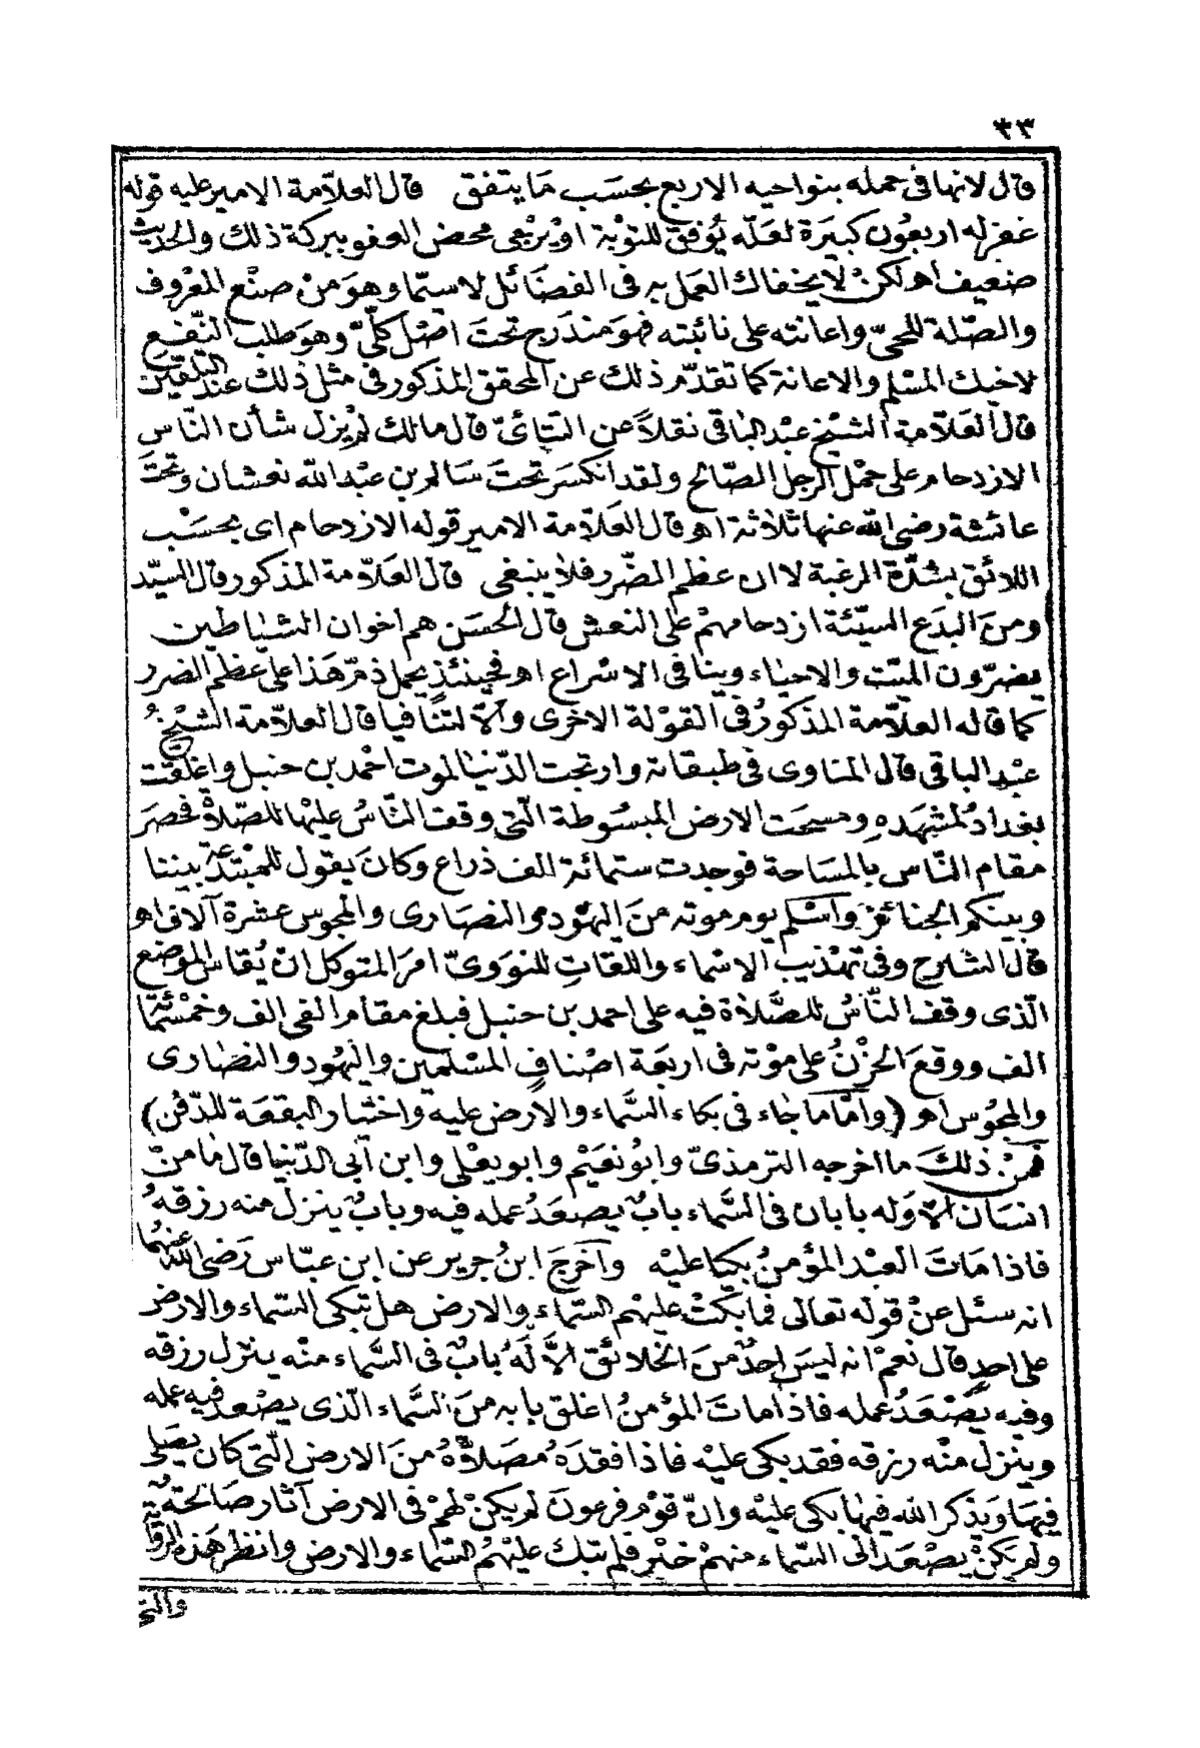 ٣٣
قال لانها فى حمله بنواحيه الاربع بحسَب مَا يتفق قال العلاّمة الامير عليه قوله
غفر له اربعُون كبيَرة لعَلّه يُوفق للتوبة اوْ يرْجى محض العفو ببركة ذلك والحديث
ضعيف اهو لكنْ لا يخفاك العَمل به فى الفضَائل لا سيّما وهوَ من صنْع المعْروف
والصّلة للحىّ واعانته على نائبته فهوَ مندَرج تحتَ اصْل كلّىّ وهوَ طلب النّفع
لاخيك المسْلم والاعانة كما تقدّم ذلك عن المحقق المذكور فى مثل ذلك عند التلقين
قال العَلاّمة الشيْخ عبْد الباقى نقلاً عن التتائىّ قال مالك لم يزل شأن النّاس
الازدحام على حمْل الرجل الصّالح ولقد انكسَر تحتَ سَالم بن عبْد الله نعشان وتحتَ
عائشة رضى الله عنها ثلاثة اهو قال العَلاّمة الامير قوله الازدحام اى بحسَب
اللائق بشدّة الرغبة لا ان عظم الضّرر فلا ينبغى قال العلاّمة المذكور قال السيّد
ومنَ البدَع السيّئة ازدحامهمْ على النعش قال الحسَن هم اخوان الشياطين
يضرّون الميّت والاحياء وينافى الاسْراع اهو فحينئذٍ يحمل ذمّ هَذا على عظم الضرر
كما قاله العلاّمة المذكورُ فى القوْلة الاخرى والاّ لتنافيا قال العلاّمة الشيْخُ
عبْد الباقى قال المناوى فى طبقاته وارتجت الدّنيا لموت احْمد بن حنبل واغلقت
بغدادُ لمشهَدهِ ومسحَت الارض المبسُوطة الّتى وقفَ النّاسُ عليْها للصّلاة فحصرَ
مقام النّاس بالمسَاحة فوجدت ستمائة الف ذراع وكانَ يقول للمبْتدعة بيننا
وبينكم الجنائز وَاسْلم يوم موته منَ اليهود والنصَارى والمجوس عشرة آلاف اهو
قال الشارح وفى تهْذيب الاسْماء واللغَات للنوَوىّ امرَ المتوكل ان يُقاسَ الموضع
الّذى وقفَ النّاسُ للصَّلاة فيه على احمد بن حنبل فبلغ مقام الفى الف وخمْسُمائة
الف ووقعَ الحزْنُ على موْته فى اربعَة اصْنافٍ المسْلمين واليَهُود والنصَارى
والمجُوس اهو (وامّا ما جَاء فى بكاء السَّماء والارْض عليه واخْتيار البقعَة للدّفْن)
فمنْ ذلكَ ما اخرجه الترمذىّ وابُو نعَيْم وابو يعْلى وابن ابى الدّنيا قال مَا منْ
انسَان الاّ وَله بابان فى السَّماء بابٌ يصعَدُ عمله فيه وبابٌ ينزل منه رزقهُ
فاذا مَاتَ العبْد المؤْمنُ بكيا عليْه واخرَجَ ابنُ جرير عن ابن عبّاس رَضى الله عنهُما
انه سئل عنْ قوله تعالى فما بكتْ عليْهم السّمَاء والارض هل تبْكى السّماء والارض
على احدٍ قال نعَمْ انه ليسَ احدٌ منَ الخلائق الاَّ لَهُ بابٌ فى السَّماء منْه ينزل رزقه
وفيه يَصْعَدُ عمله فاذا ماتَ المؤْمنُ اغلق بابه منَ السَّماء الّذى يصْعد فيه عمله
وينزل منْه رزقه فقد بكى عليْه فاذا فقدَهُ مُصَلاّهُ منَ الارض الّتى كان يصَلى
فيهَا وَيَذكر الله فيهَا بكى عليْه وانّ قوْم فرعونَ لم يكنْ لهمْ فى الارْض آثار صَالحة
ولم يكنْ يصْعَد الى السّماء منهمْ خيْر فلم تبك عليْهمُ السّماء والارض وانظر هَذه الرقة